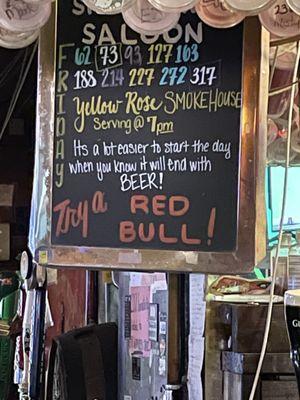 SALOON
FRIDAY
62 73 93 127 163
188 214 227 272 317
Yellow Rose SMOKEHOUSE
Serving @ 7pm
Its a lot easier to start the day
when you know it will end with
BEER!
Try a RED
BULL!